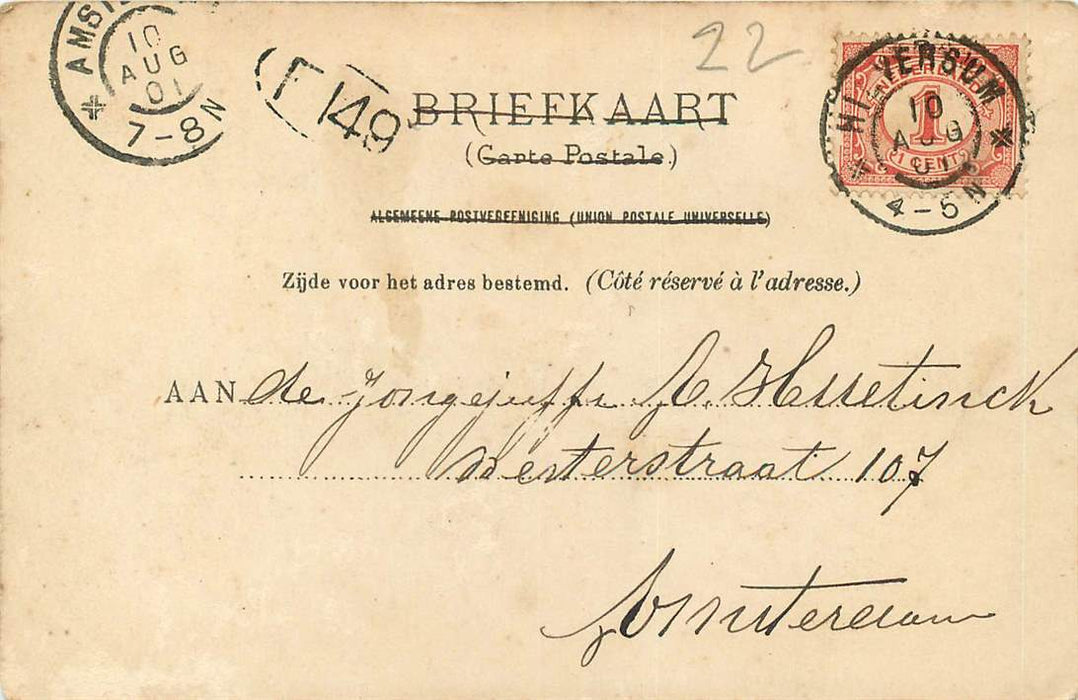 AMST
10
AUG
01
7-8N
T 149
22
BRIEFKAART
(Carte Postale.)
ALGEMEENE POSTVEREENIGING (UNION POSTALE UNIVERSELLE)
NEDERLAND
1
1 CENT
HILVERSUM
10
AUG
4-5N
Zijde voor het adres bestemd. (Côté réservé à l'adresse.)
AAN de Jongejuffr A.
Westerstraat 107
Amsterdam